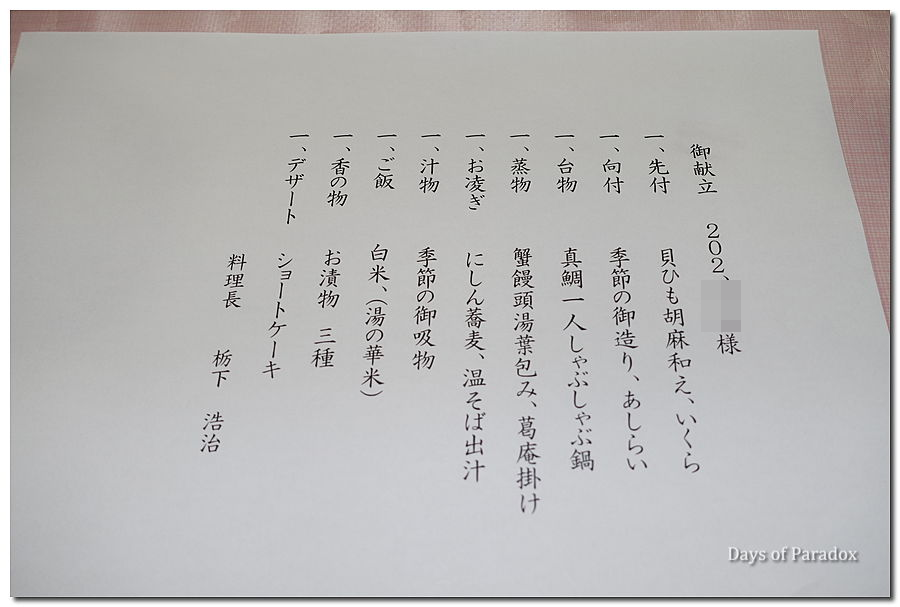 御献立 202、様
一、先付 貝ひも胡麻和え、いくら
一、向付 季節の御造り、あしらい
一、台物 真鯛一人しゃぶしゃぶ鍋
一、蒸物 蟹饅頭湯葉包み、葛庵掛け
一、お凌ぎ にしん蕎麦、温そば出汁
一、汁物 季節の御吸物
一、ご飯 白米、（湯の華米）
一、香の物 お漬物 三種
一、デザート ショートケーキ
料理長 栃下 浩治
Days of Paradox